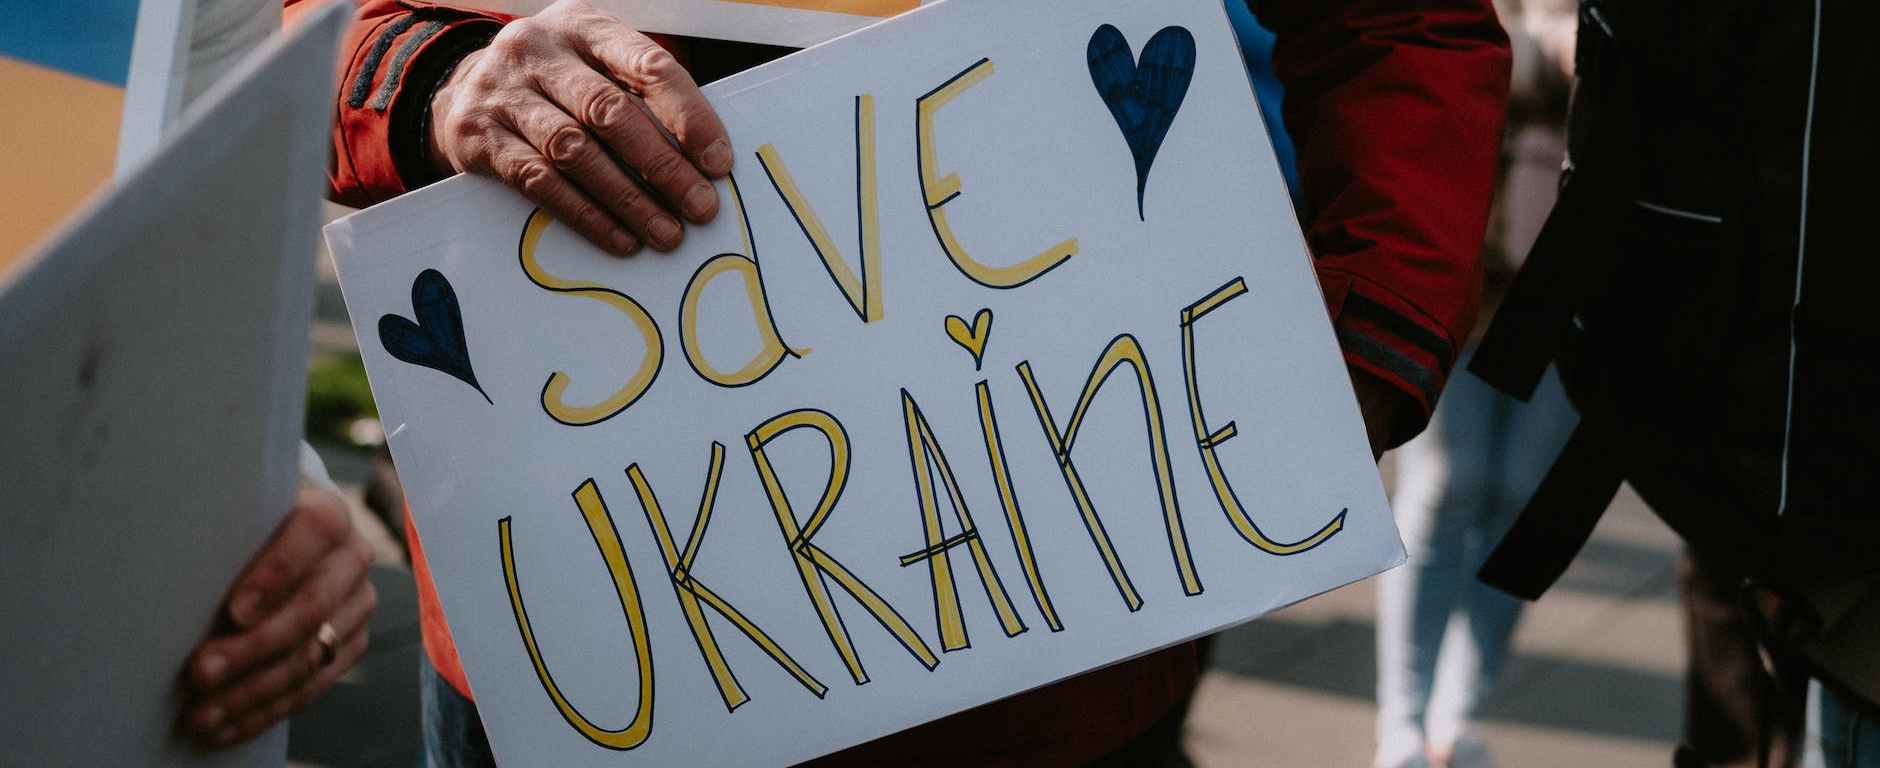 SaVE
UKRAiNE